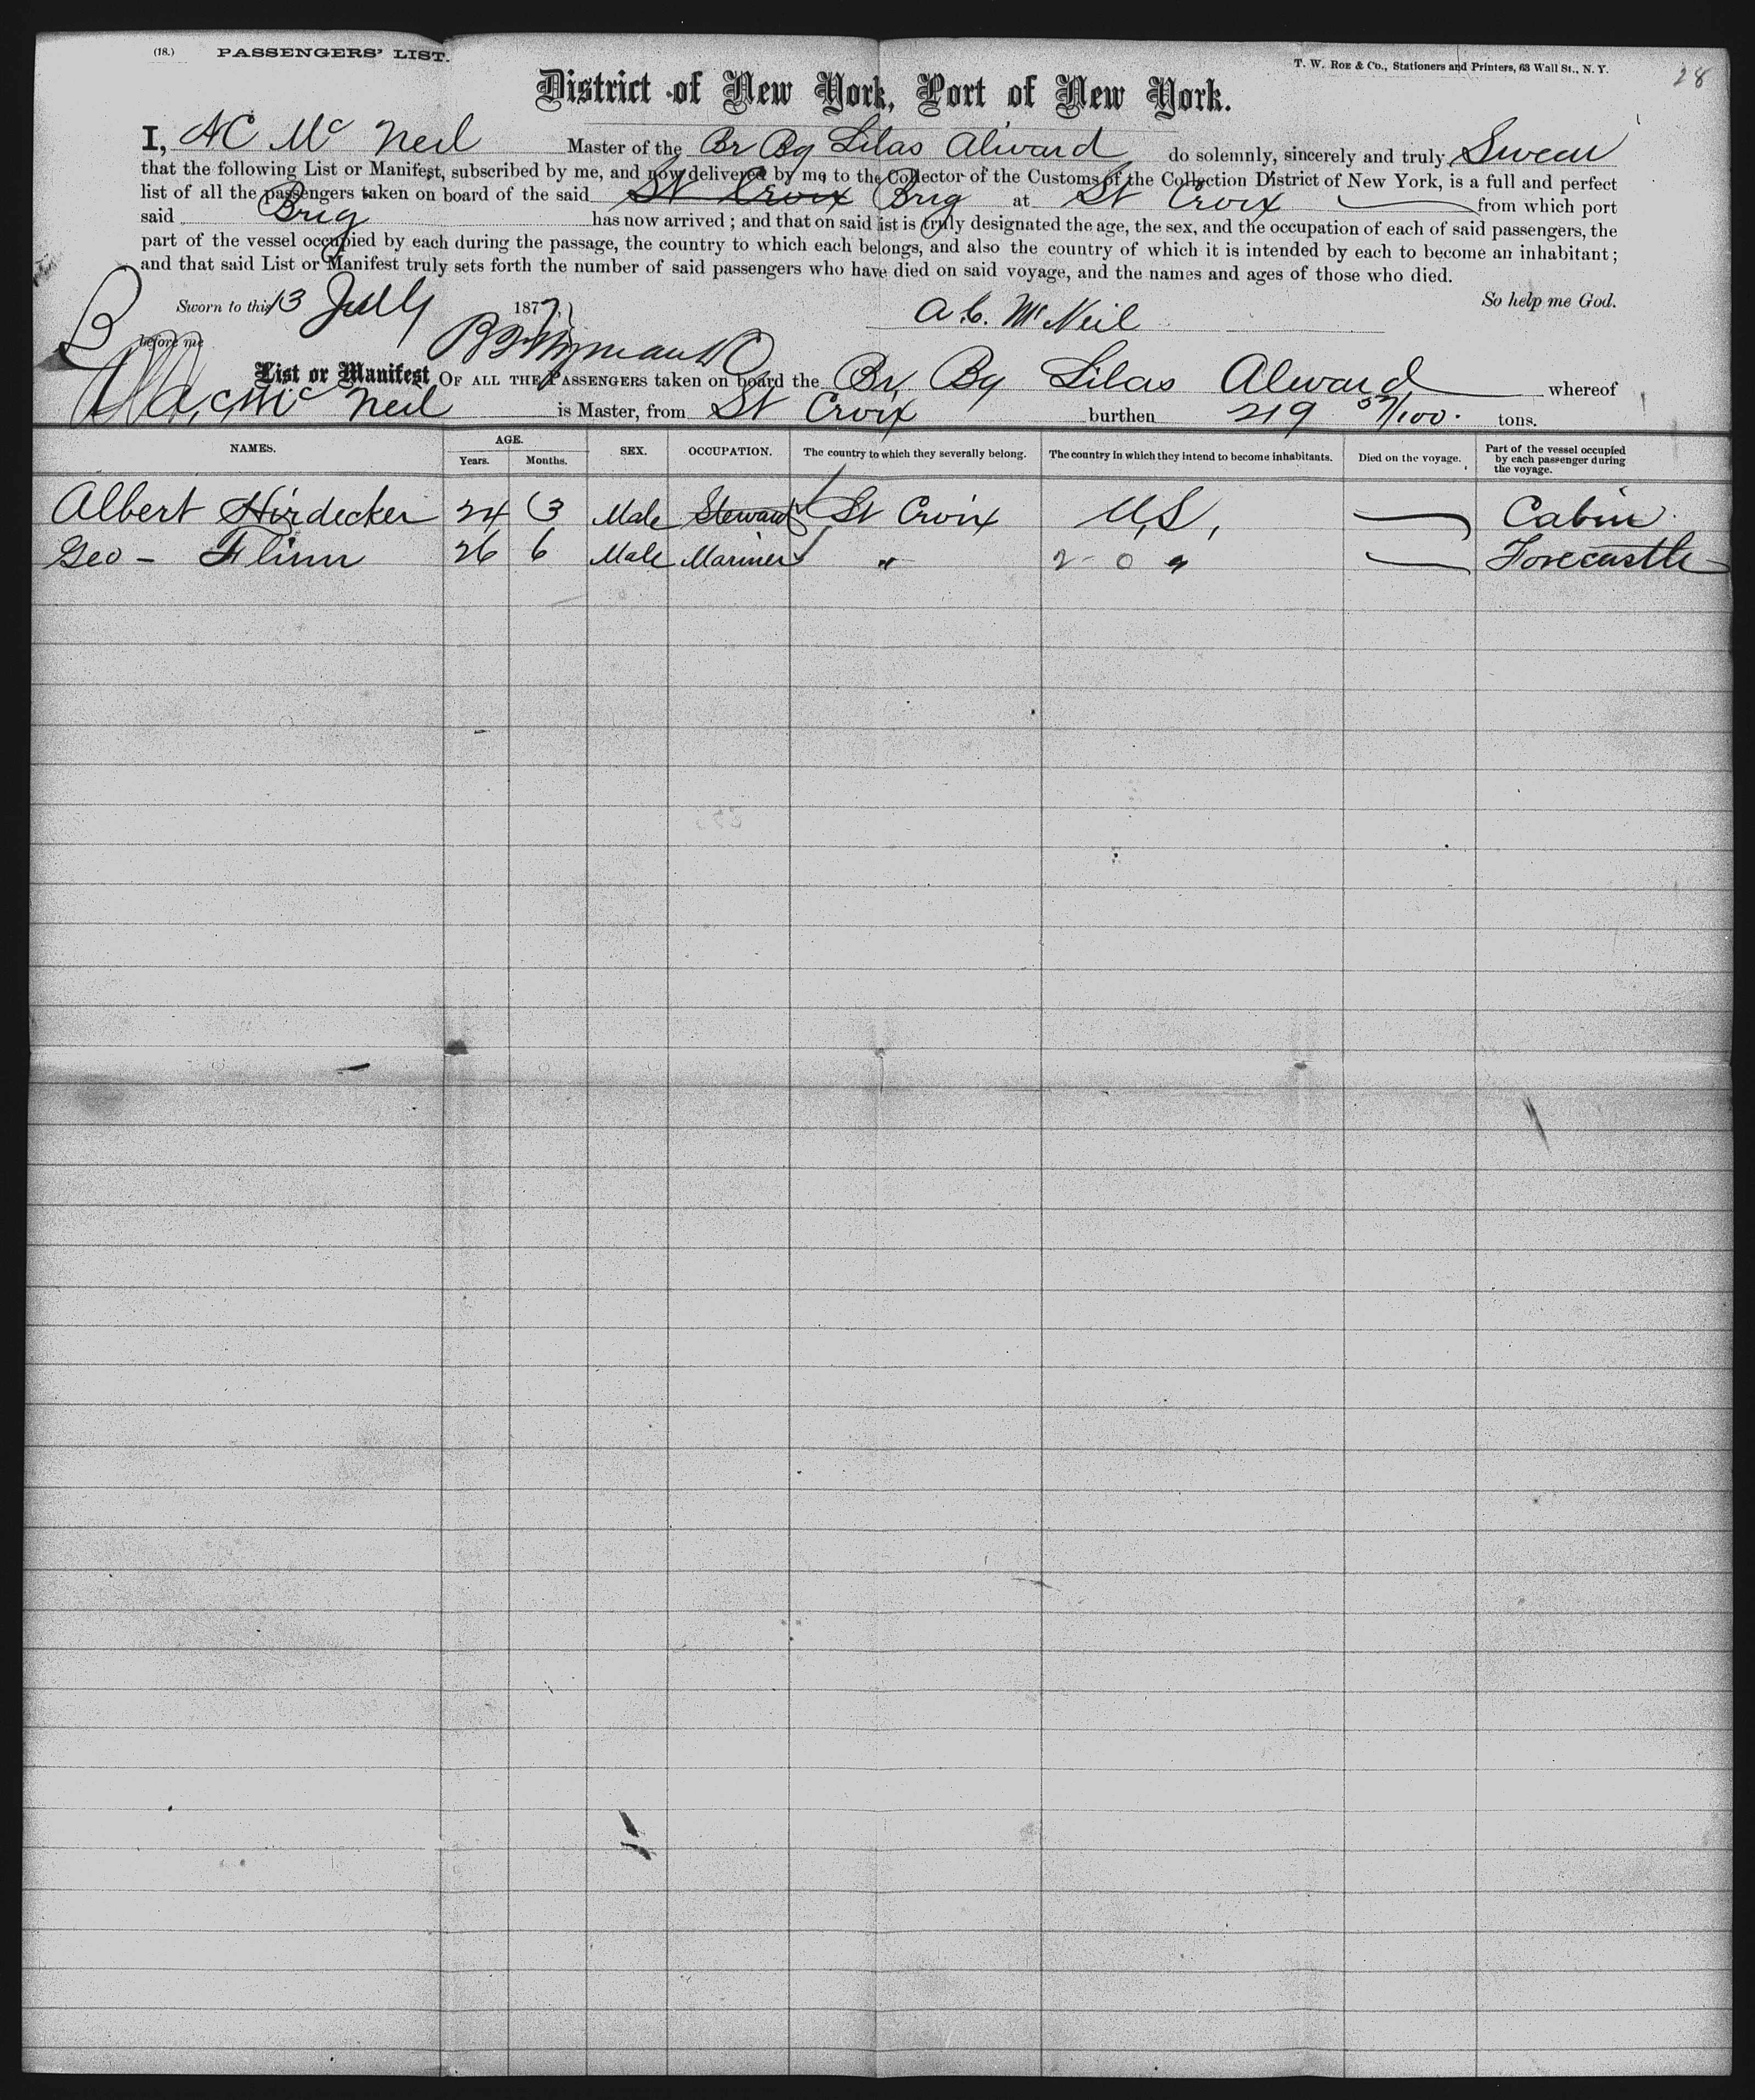 (18.) PASSENGERS' LIST.
T. W. Roe & Co., Stationers and Printers, 63 Wall St., N. Y.
28
District of New York, Port of New York.
I, AC Mc Neil Master of the Br Bg Silas Alward do solemnly, sincerely and truly Swear
that the following List or Manifest, subscribed by me, and now delivered by me to the Collector of the Customs of the Collection District of New York, is a full and perfect
list of all the passengers taken on board of the said St Croix Brig at St Croix from which port
said Brig has now arrived ; and that on said ist is truly designated the age, the sex, and the occupation of each of said passengers, the
part of the vessel occupied by each during the passage, the country to which each belongs, and also the country of which it is intended by each to become an inhabitant ;
and that said List or Manifest truly sets forth the number of said passengers who have died on said voyage, and the names and ages of those who died.
Sworn to this 13 July 187 A C. McNeil So help me God.
before me
List or Manifest OF ALL THE PASSENGERS taken on board the Br, Bg Silas Alward whereof
Mc Neil is Master, from St Croix burthen 219 57/100. tons.
NAMES. AGE. Years. Months. SEX. OCCUPATION. The country to which they severally belong. The country in which they intend to become inhabitants. Died on the voyage. Part of the vessel occupied by each passenger during the voyage.
Albert Hirdecker 24 3 Male Steward St Croix U.S, Cabin
Geo - Flinn 26 6 Male Mariner " Forecastle